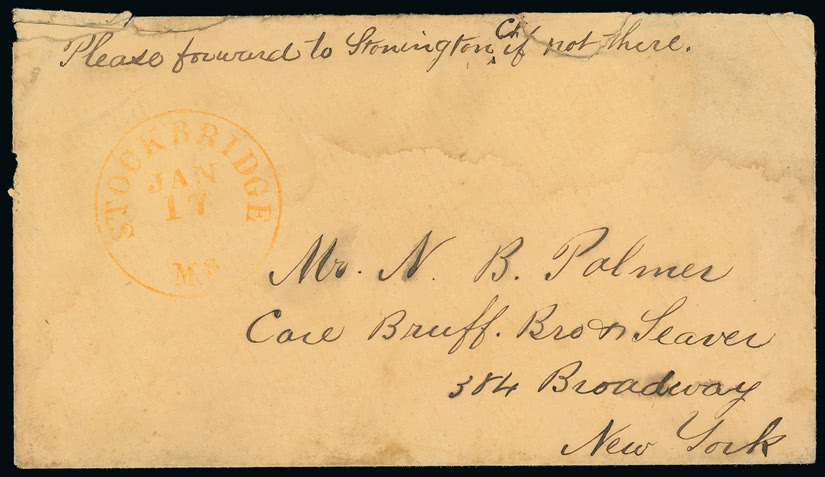 Please forward to Stonington Ct if not there.
STOCKBRIDGE
JAN
17
Ms
Mr. N. B. Palmer
Care Bruff. Bro & Seaver
384 Broadway
New York